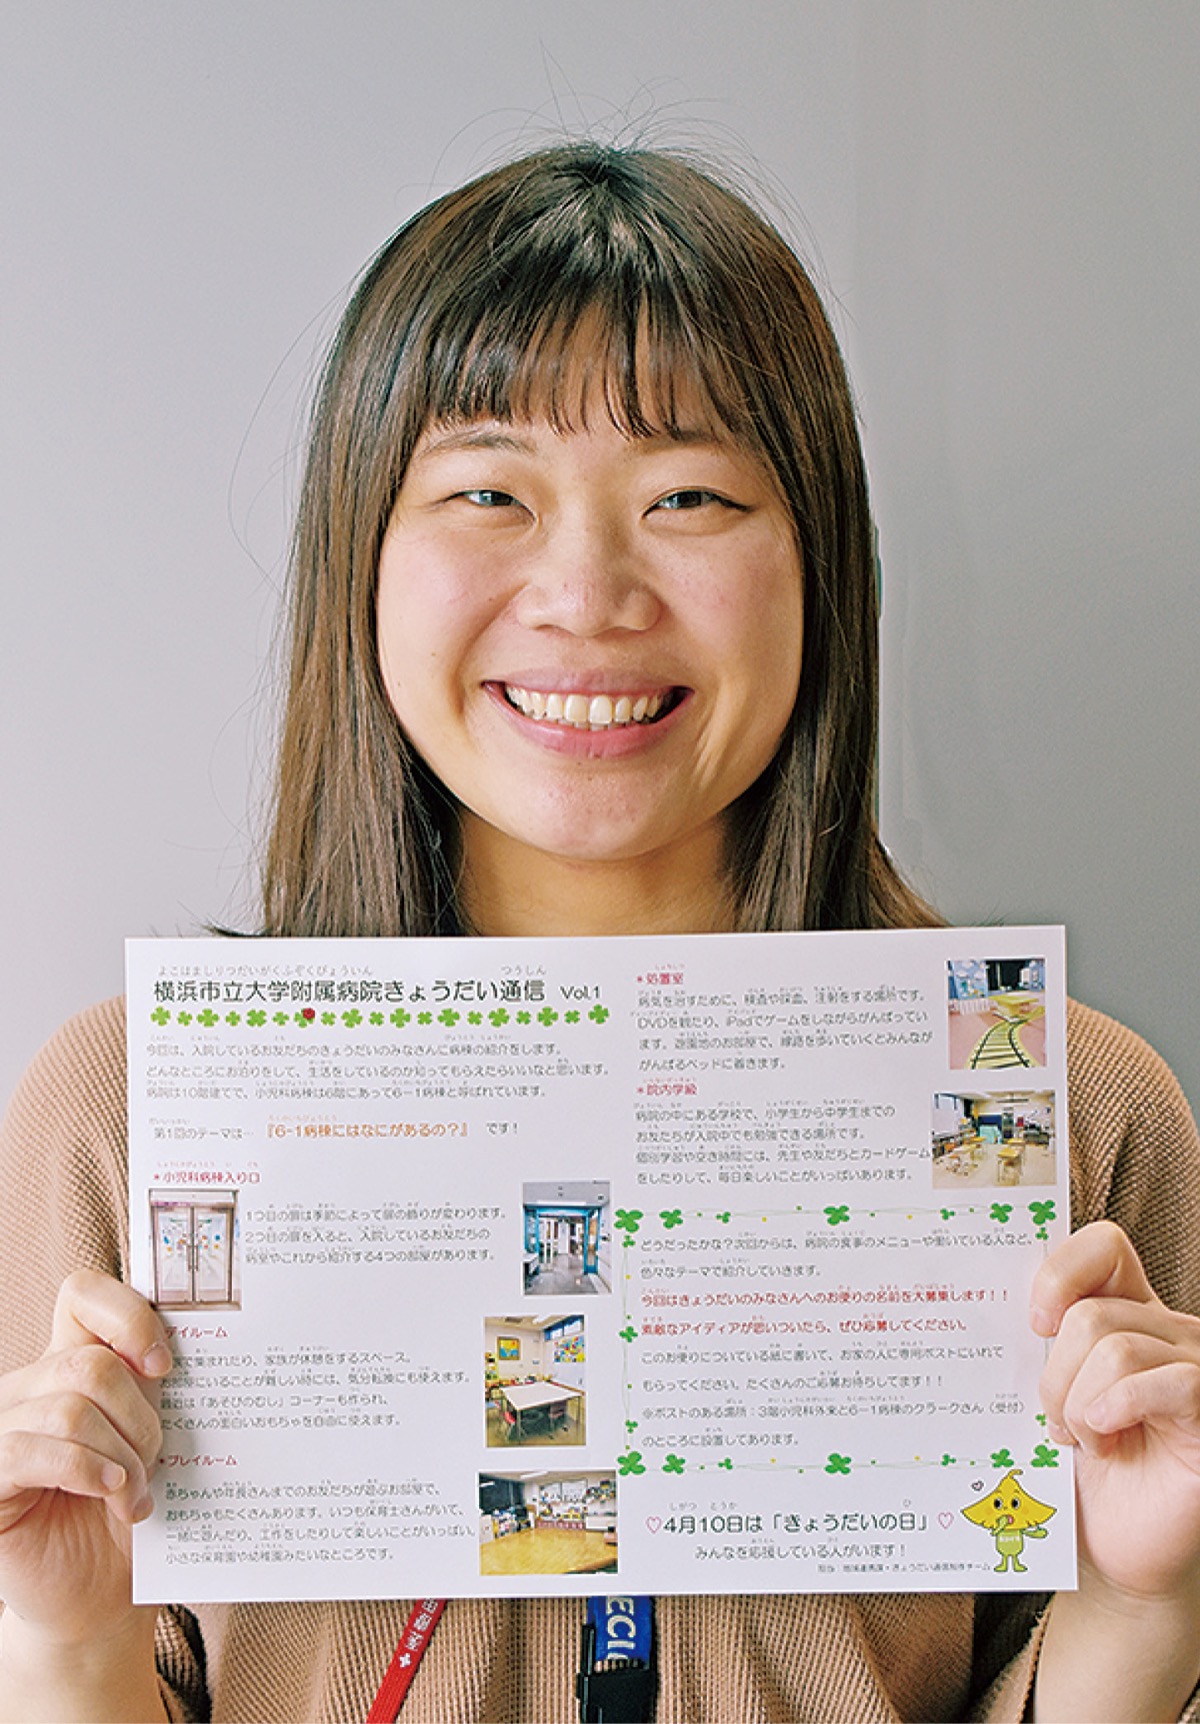 よこはましりつだいがくふぞくびょういん つうしん
横浜市立大学附属病院きょうだい通信 Vol.1
今回は、入院しているお友だちのきょうだいのみなさんに病棟の紹介をします。
どんなところにお泊りをして、生活をしているのか知ってもらえたらいいなと思います。
病院は10階建てで、小児科病棟は6階にあって6-1病棟と呼ばれています。
第1回のテーマは… 『6-1病棟にはなにがあるの？』 です！
*小児科病棟入り口
1つ目の扉は季節によって扉の飾りが変わります。
2つ目の扉を入ると、入院しているお友だちの
病室やこれから紹介する4つの部屋があります。
デイルーム
で集まれたり、家族が休憩をするスペース。
お部屋にいることが難しい時には、気分転換にも使えます。
最近は「あそびのむし」コーナーも作られ、
たくさんの面白いおもちゃを自由に使えます。
*プレイルーム
赤ちゃんや年長さんまでのお友だちが遊ぶお部屋で、
おもちゃもたくさんあります。いつも保育士さんがいて、
一緒に遊んだり、工作をしたりして楽しいことがいっぱい。
小さな保育園や幼稚園みたいなところです。
*処置室
病気を治すために、検査や採血、注射をする場所です。
DVDを観たり、iPadでゲームをしながらがんばってい
ます。遊園地のお部屋で、線路を歩いていくとみんなが
がんばるベッドに着きます。
*院内学級
病院の中にある学校で、小学生から中学生までの
お友だちが入院中でも勉強できる場所です。
個別学習や空き時間には、先生や友だちとカードゲーム
をしたりして、毎日楽しいことがいっぱいあります。
どうだったかな？次回からは、病院の食事のメニューや働いている人など、
色々なテーマで紹介していきます。
今回はきょうだいのみなさんへのお便りの名前を大募集します！！
素敵なアイディアが思いついたら、ぜひ応募してください。
このお便りについている紙に書いて、お家の人に専用ポストにいれて
もらってください。たくさんのご応募お待ちしてます！！
※ポストのある場所：3階小児科外来と6-1病棟のクラークさん（受付）
のところに設置してあります。
♡4月10日は「きょうだいの日」♡
みんなを応援している人がいます！
ECI